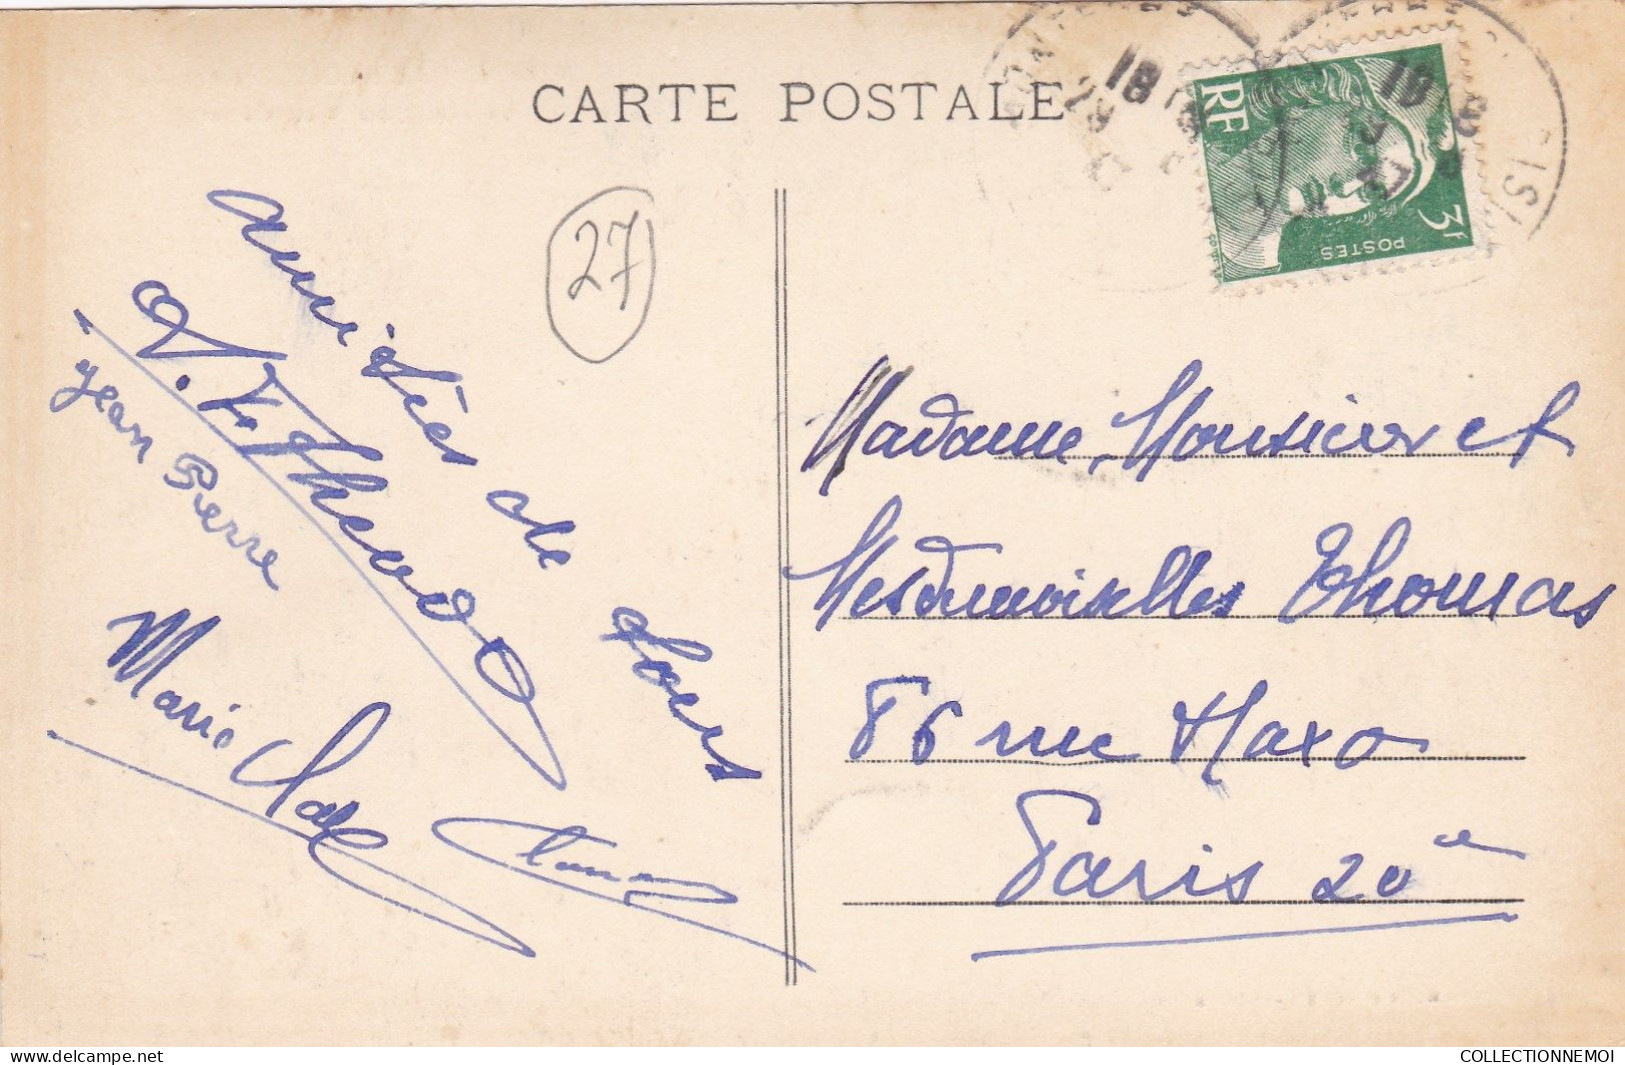 CARTE POSTALE
27
RF
3f
POSTES
18
amitiés de
Jean Pierre
Marie
Madame, Monsieur et
Mesdemoiselles Thomas
86 rue Haxo
Paris 20e
delcampe.net
COLLECTIONNEMOI